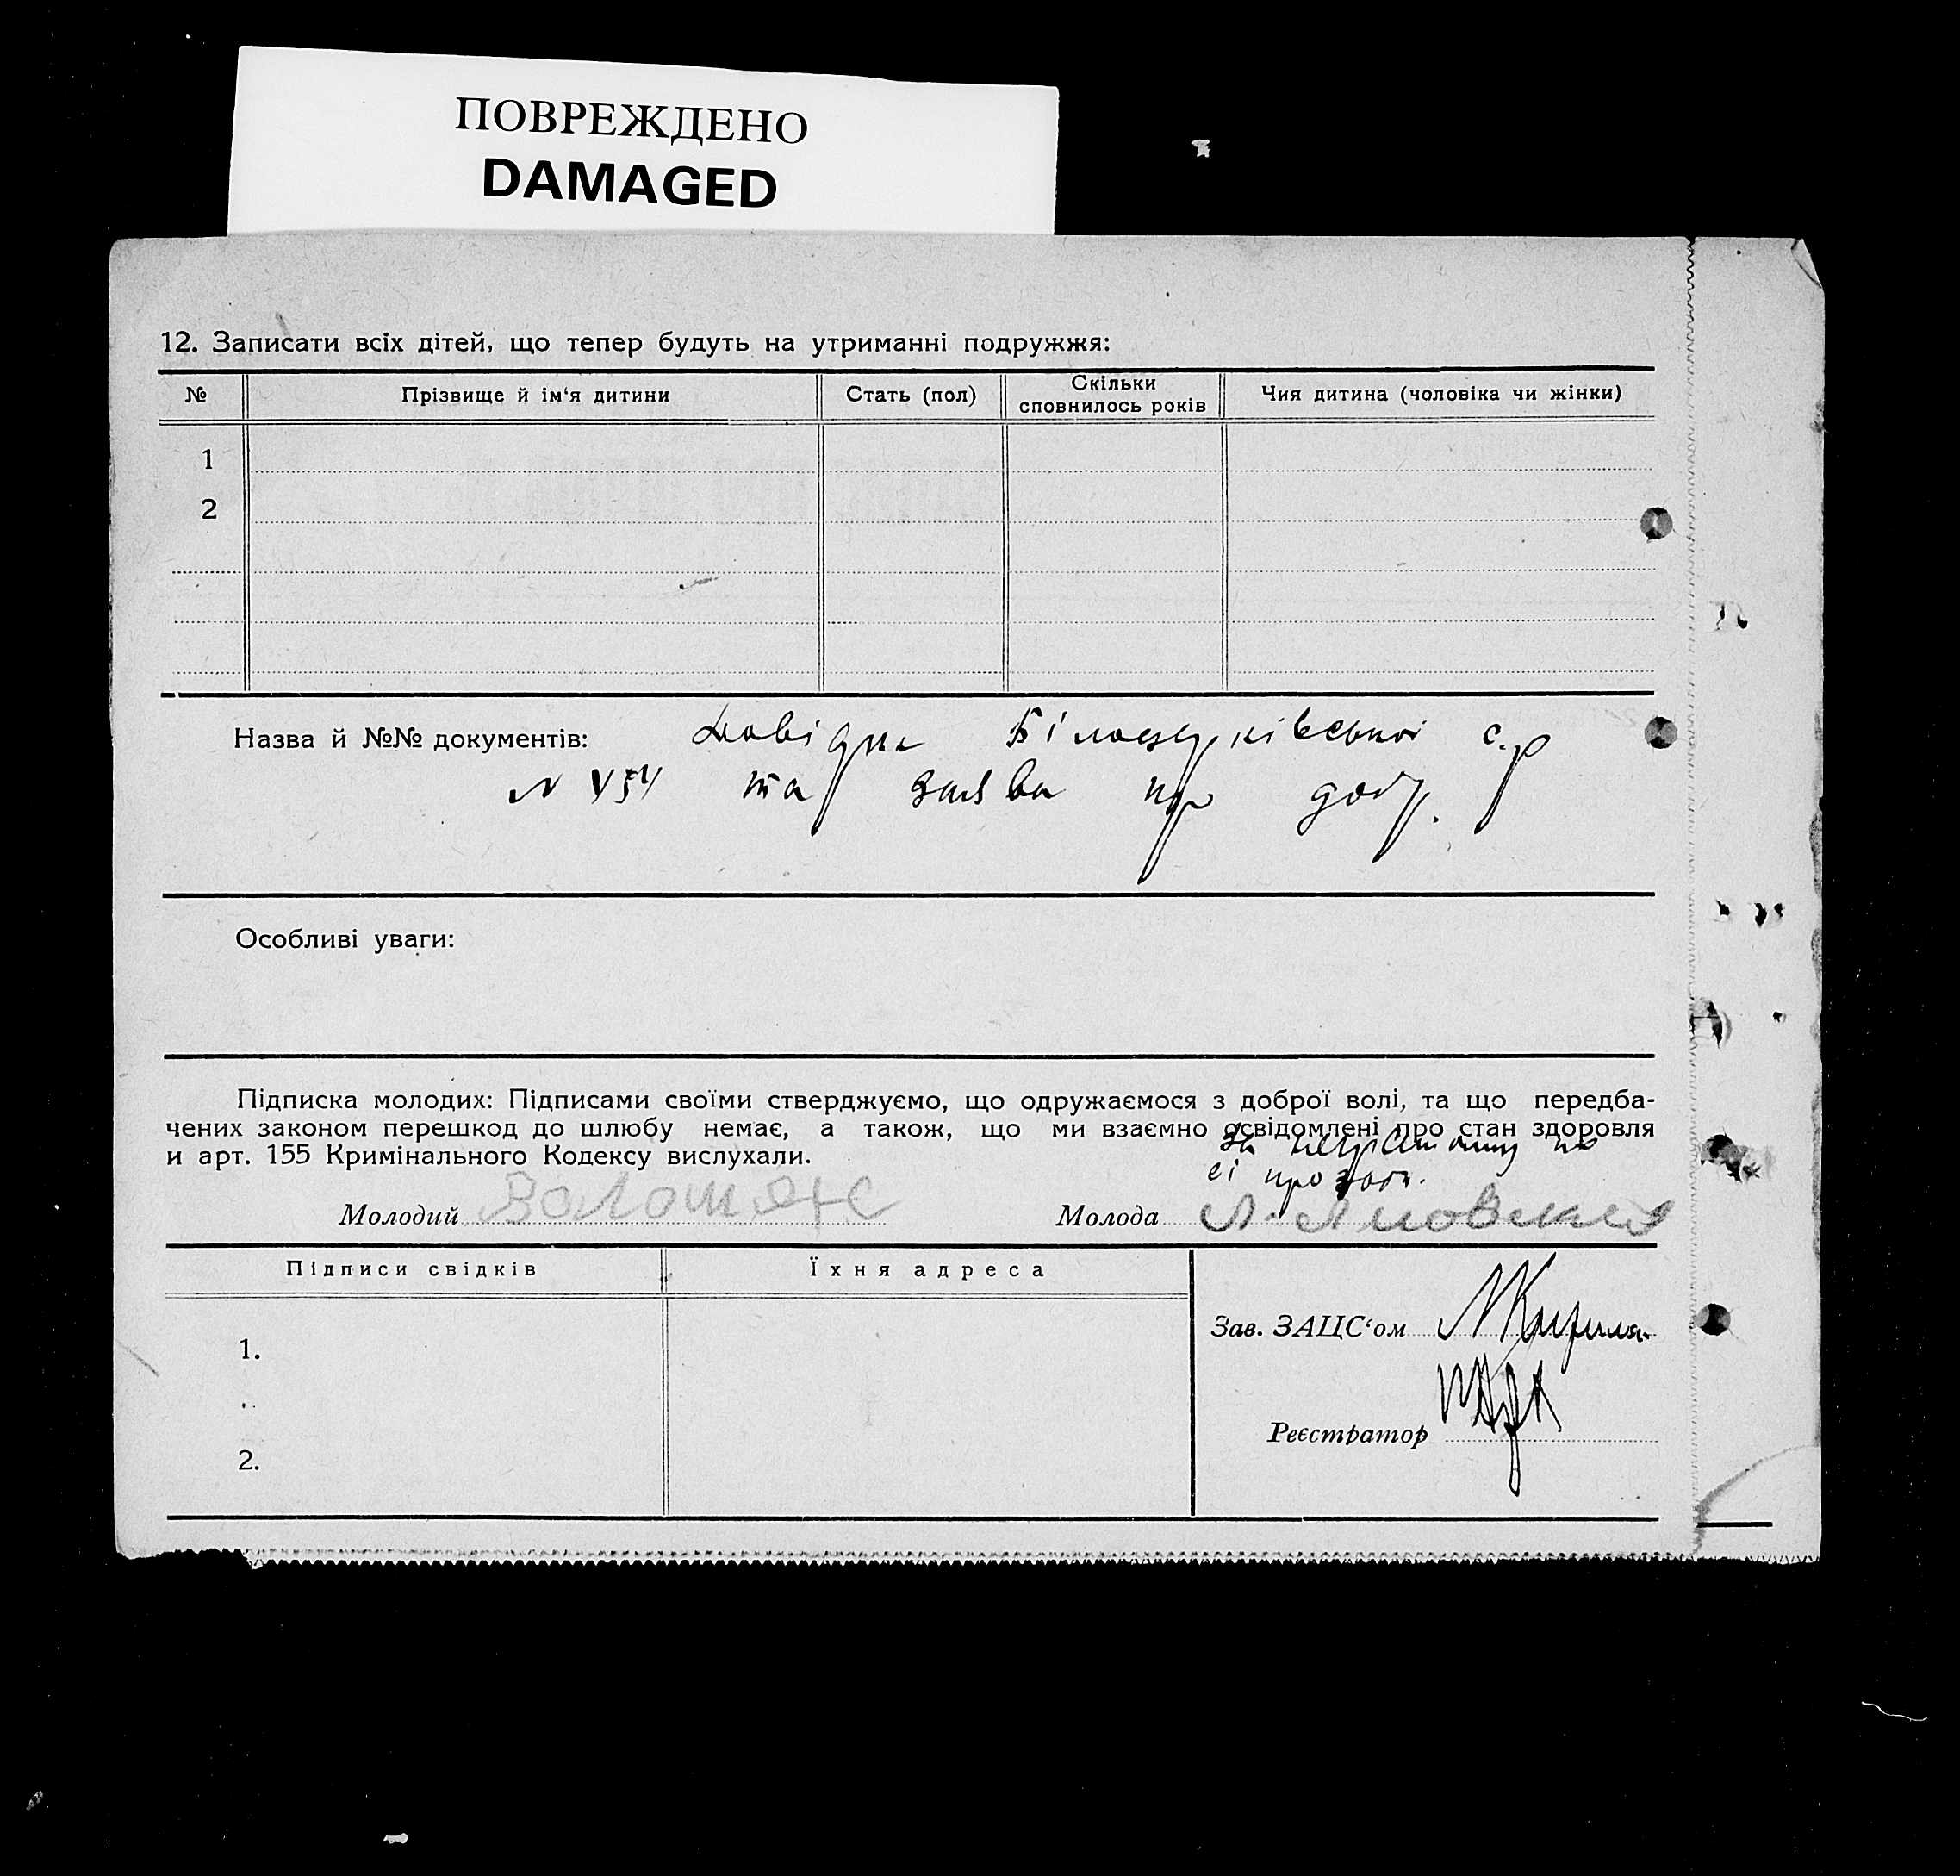 ПОВРЕЖДЕНО
DAMAGED
12. Записати всіх дітей, що тепер будуть на утриманні подружжя:
№ Прізвище й ім'я дитини Стать (пол) Скільки сповнилось років Чия дитина (чоловіка чи жінки)
1
2
Назва й №№ документів: довідка Білоцерківської с.р
та заява про
Особливі уваги:
Підписка молодих: Підписами своїми стверджуємо, що одружаємося з доброї волі, та що передба-
чених законом перешкод до шлюбу немає, а також, що ми взаємно освідомлені про стан здоровля
и арт. 155 Кримінального Кодексу вислухали.
За неграмотну по
її
Молодий Молода
Підписи свідків Їхня адреса
Зав. ЗАЦС'ом
1.
Реєстратор
2.